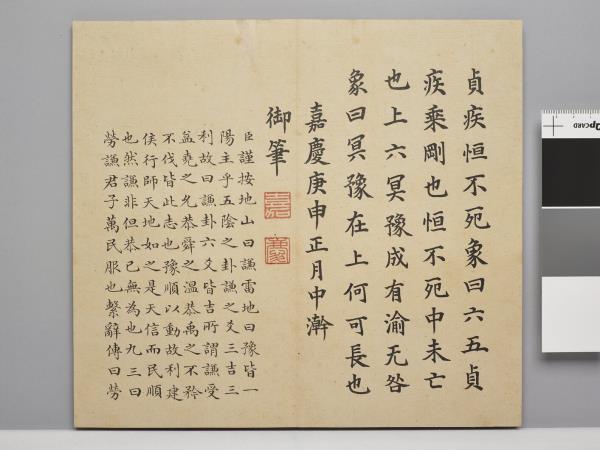 貞疾恒不死象曰六五貞
疾乘剛也恒不死中未亡
也上六冥豫成有渝无咎
象曰冥豫在上何可長也
嘉慶庚申正月中澣
御筆
嘉
慶
臣謹按地山曰謙雷地曰豫皆一
陽主乎五陰之卦謙之爻三吉三
利故曰謙卦六爻皆吉所謂謙受
益堯之允恭舜之溫恭禹之不矜
不伐皆此志也豫順以動故利建
侯行師天地如之是天信而民順
也然謙非但恭己無為也九三曰
勞謙君子萬民服也繫辭傳曰勞